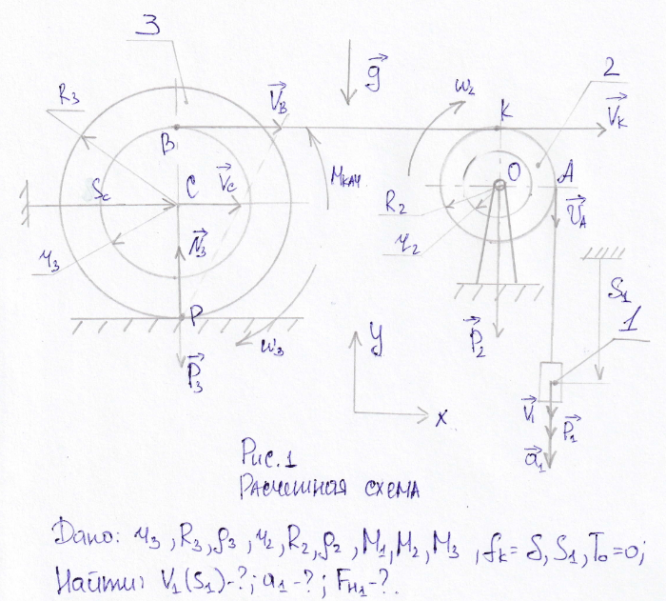 3
2
R₃
V⃗_B
g⃗
ω₂
K
V⃗_K
B
S_c
C
V⃗_c
M_кач
O
A
R₂
V⃗_A
r₃
N⃗₃
r₂
S₁
P
P⃗₂
1
ω₃
P⃗₃
y
x
V⃗₁
P⃗₁
a⃗₁
Рис. 1
Расчетная схема
Дано: r₃, R₃, ρ₃, r₂, R₂, ρ₂, M₁, M₂, M₃, f_k = δ, S₁, T₀ = 0;
Найти: V₁(S₁)-?; a₁-?; F_н₁-?.